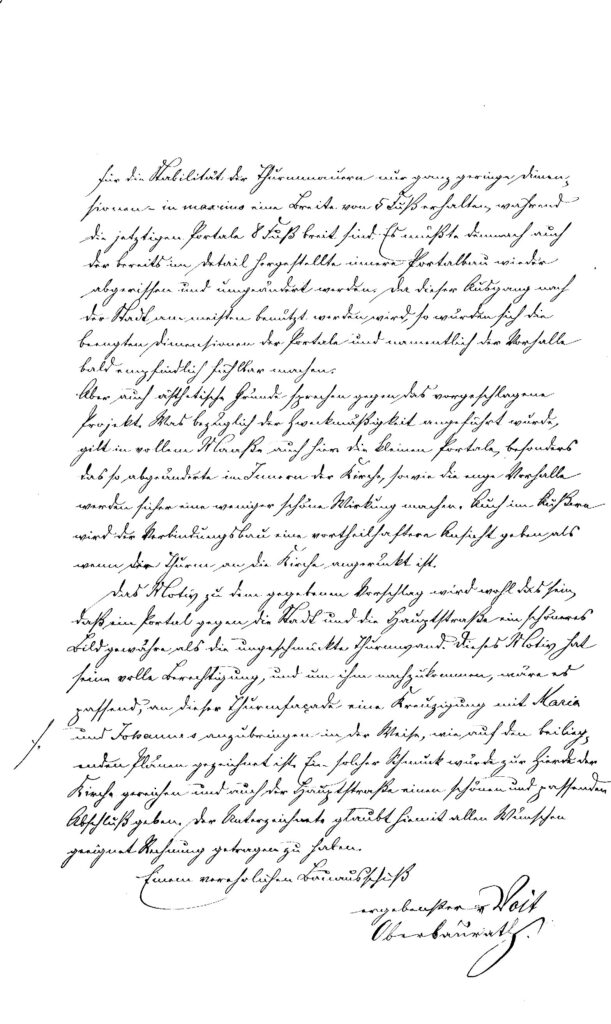 für die Stabilität der Thurmmauern nur ganz geringe Dimen-
sionen – in maximo eine Breite von 5 Fuß erhalten, während
die jetztigen Portale 8 Fuß breit sind. Es müßte demnach auch
der bereits im Detail hergestellte innere Portalbau wieder
abgerissen und umgeändert werden. Da dieser Ausgang nach
der Stadt am meisten benützt werden wird, so würden sich die
beengten Dimensionen der Portale und namentlich der Vorhalle
bald empfindlich fühlbar machen.
Aber auch ästhetische Gründe sprechen gegen das vorgeschlagene
Projekt. Was bezüglich der Zweckmäßigkeit angeführt wurde,
gilt in vollem Maaße auch hier: die kleinen Portale, besonders
das so abgeänderte im Innern der Kirche, sowie die enge Vorhalle
werden sicher eine weniger schöne Wirkung machen. Auch im Äußern
wird der Verbindungsbau eine vortheilhaftere Ansicht geben als
wenn der Thurm an die Kirche angerückt ist.
Das Motiv zu dem gegebenen Vorschlag wird wohl das sein,
daß ein Portal gegen die Stadt und die Hauptstraße ein schöneres
Bild gewähre als die ungeschmückte Thurmwand. Dieses Motiv hat
seine volle Berechtigung, und um ihm nachzukommen, wäre es
passend, an dieser Thurmfaçade eine Kreuzigung mit Maria
und Johannes anzubringen in der Weise, wie auf den beilieg-
enden Plänen gezeichnet ist. Ein solcher Schmuck würde zur Zierde der
Kirche gereichen und auch der Hauptstraße einen schönen und passenden
Abschluß geben. Der Unterzeichnete glaubt hiemit allen Wünschen
geeignet Rechnung getragen zu haben.
Einem verehrlichen Bauausschuß
ergebenster v Voit
Oberbaurath.